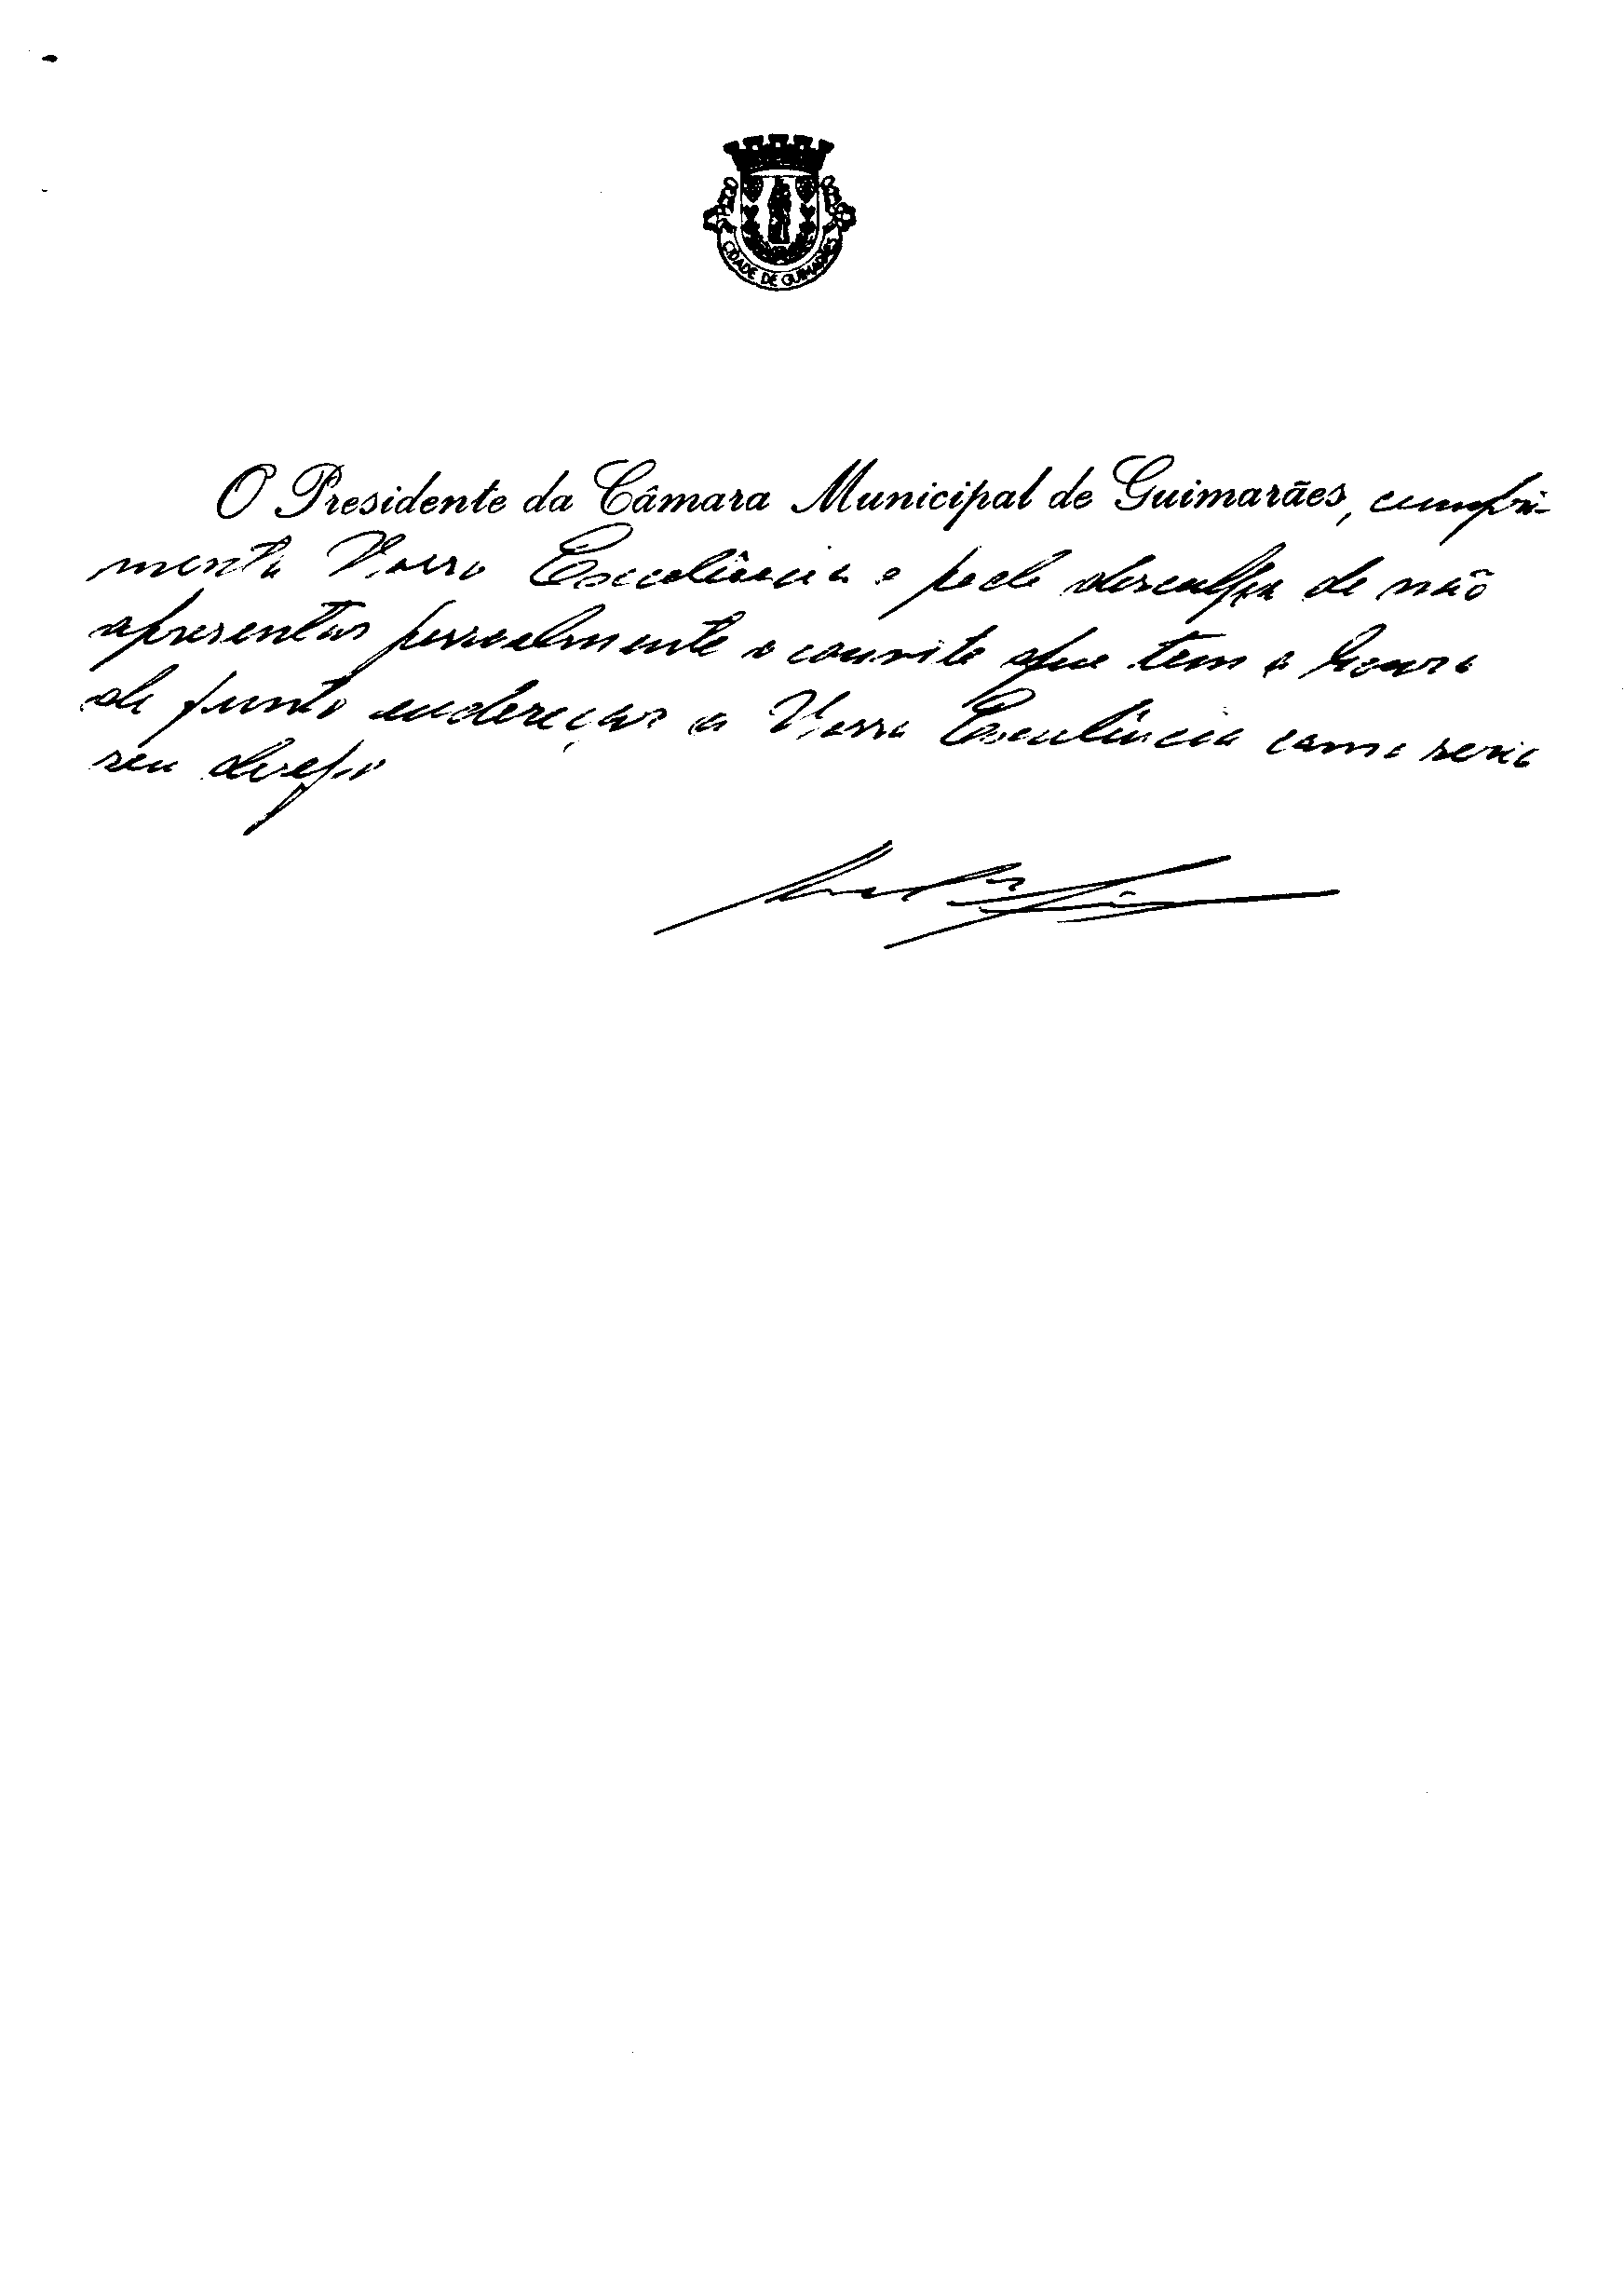 CIDADE DE GUIMARÃES
O Presidente da Câmara Municipal de Guimarães, cumpri-
menta Vossa Excelência e pede desculpa de não
apresentar pessoalmente o convite que tem a honra
de junto endereçar a Vossa Excelência como seria
seu desejo